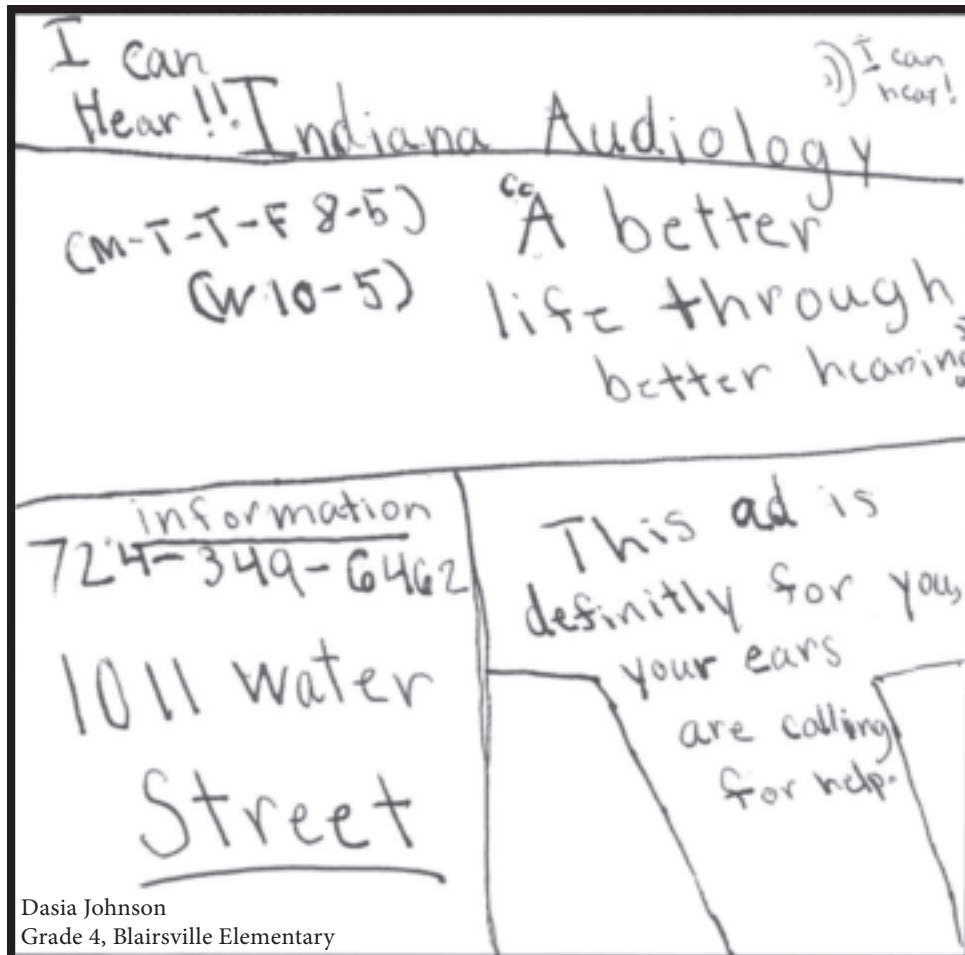 I can
Hear!!
Indiana Audiology
I can
hear!
(M-T-T-F 8-5)
(W 10-5)
"A better
life through
better hearing
information
724-349-6462
1011 water
Street
This ad is
definitly for you,
your ears
are calling
for help.
Dasia Johnson
Grade 4, Blairsville Elementary